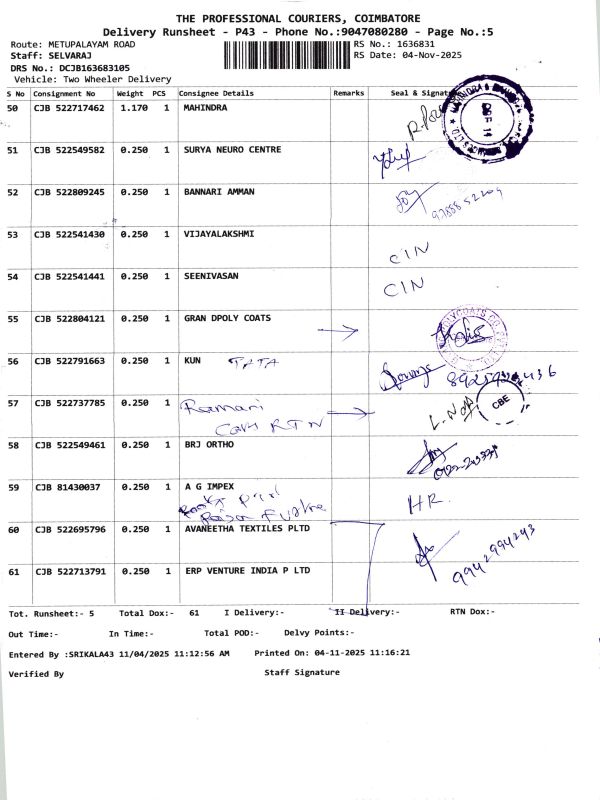 THE PROFESSIONAL COURIERS, COIMBATORE
Delivery Runsheet - P43 - Phone No.:9047080280 - Page No.:5
Route: METUPALAYAM ROAD RS No.: 1636831
Staff: SELVARAJ RS Date: 04-Nov-2025
DRS No.: DCJB163683105
Vehicle: Two Wheeler Delivery
S No Consignment No Weight PCS Consignee Details Remarks Seal & Signature
50 CJB 522717462 1.170 1 MAHINDRA
51 CJB 522549582 0.250 1 SURYA NEURO CENTRE
52 CJB 522809245 0.250 1 BANNARI AMMAN
53 CJB 522541430 0.250 1 VIJAYALAKSHMI CIN
54 CJB 522541441 0.250 1 SEENIVASAN CIN
55 CJB 522804121 0.250 1 GRAN DPOLY COATS
56 CJB 522791663 0.250 1 KUN TATA
57 CJB 522737785 0.250 1 CBE
58 CJB 522549461 0.250 1 BRJ ORTHO
59 CJB 81430037 0.250 1 A G IMPEX HR.
60 CJB 522695796 0.250 1 AVANEETHA TEXTILES PLTD
9942994243
61 CJB 522713791 0.250 1 ERP VENTURE INDIA P LTD
Tot. Runsheet:- 5 Total Dox:- 61 I Delivery:- II Delivery:- RTN Dox:-
Out Time:- In Time:- Total POD:- Delvy Points:-
Entered By :SRIKALA43 11/04/2025 11:12:56 AM Printed On: 04-11-2025 11:16:21
Verified By Staff Signature